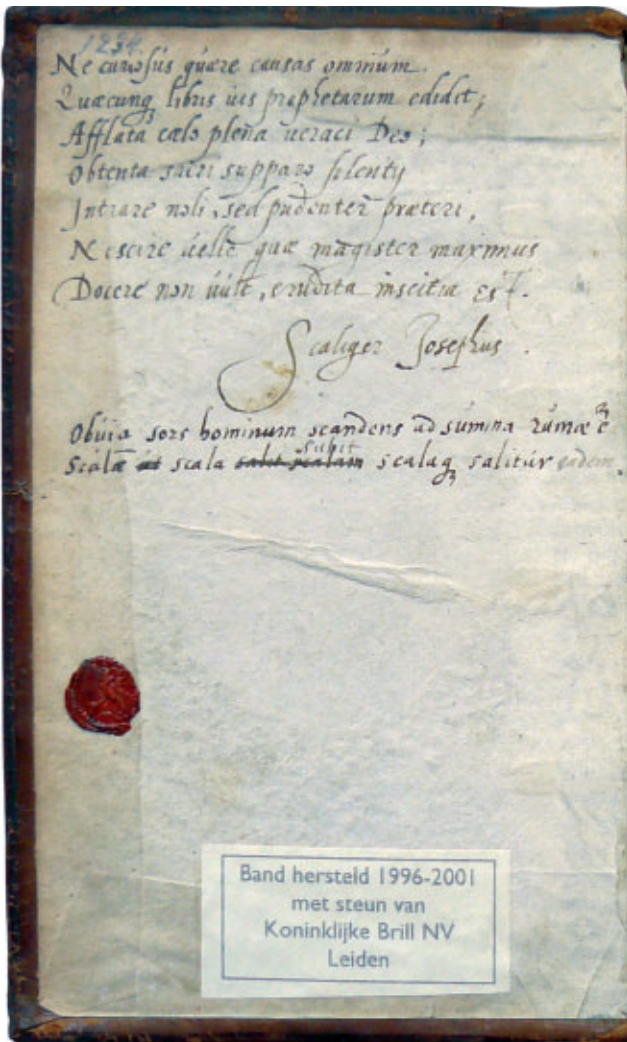 1234
Ne curiosus quære causas omnium.
Quæcunq libris vis prophetarum edidit;
Afflata cælo plena veraci Deo;
Obtenta sacri supparo silentij
Intrare noli, sed pudenter præteri.
Nescire velle quæ magister maximus
Docere non vult, erudita inscitia est.
Scaliger Josephus.
Obvia sors hominum scandens ad summa
scala salitur eadem
subit
scala ut scala salit scalam scalaq
Band hersteld 1996-2001
met steun van
Koninklijke Brill NV
Leiden